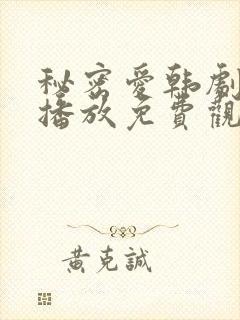 秘密愛韩劇
播放免費觀
黃克誠